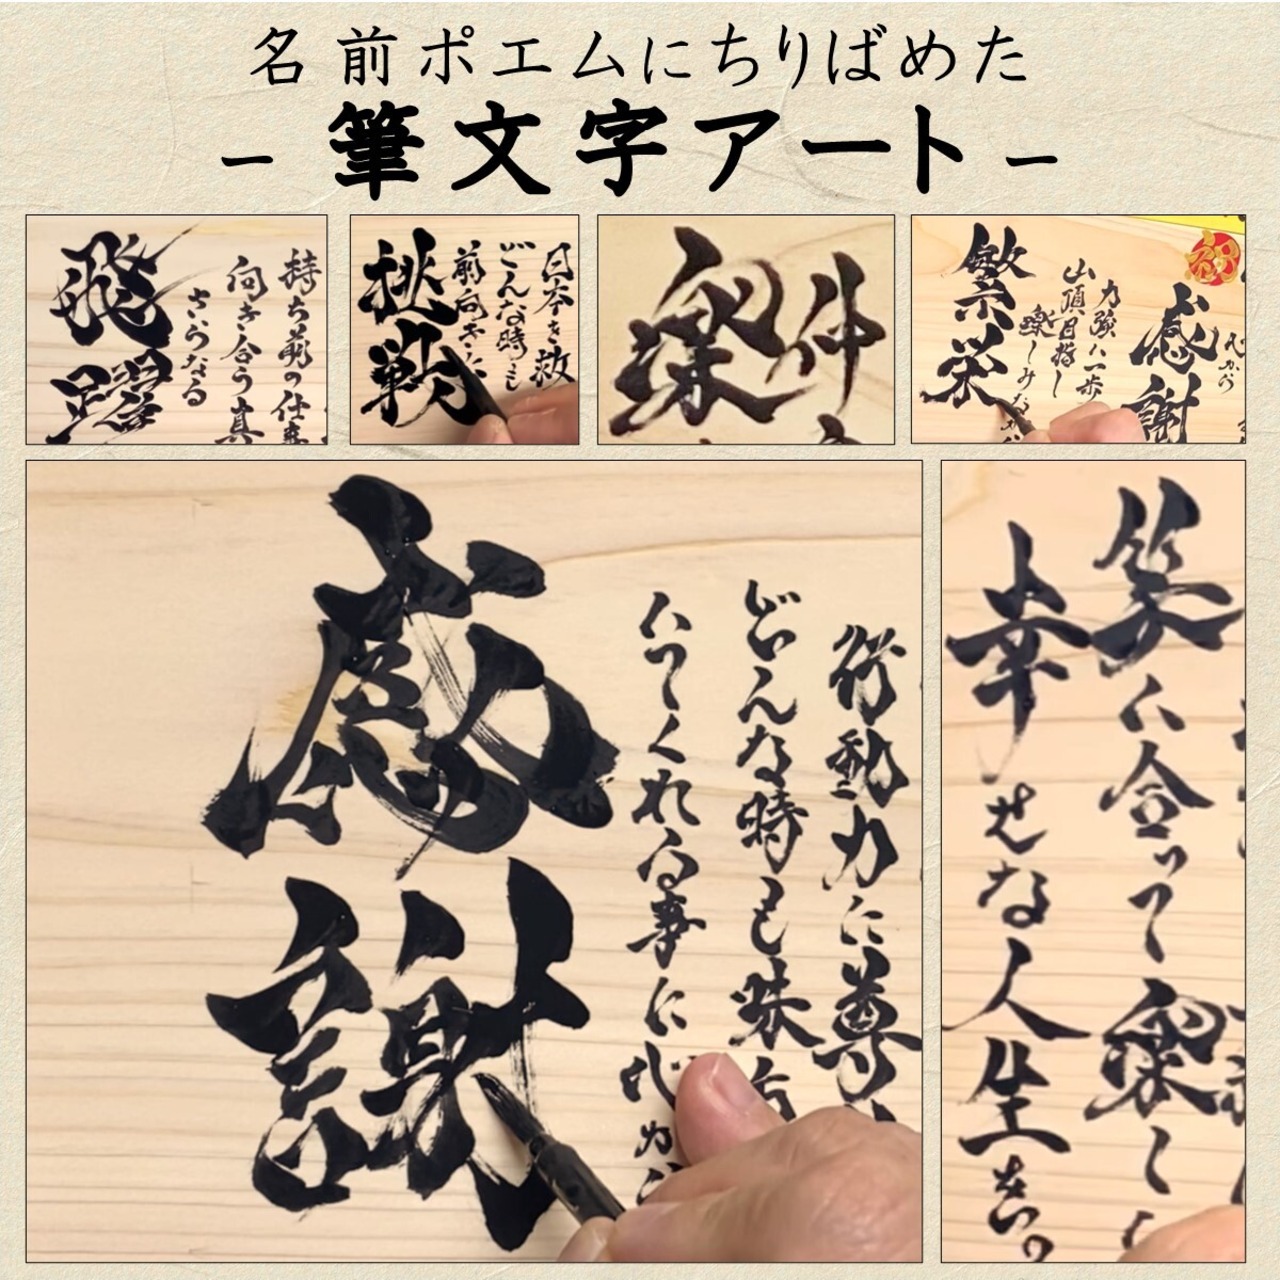 名前ポエムにちりばめた
- 筆文字アート -
持ち前の仕事
向き合う真
さらなる
飛躍
日本を救
どんな時も
前向きに
挑戦
絆
楽
心から
感謝
力強い一歩
山頂目指し
楽しみな
繁栄
行動力に尊
どんな時も味方
いてくれる事に
心から
感謝
笑い合って楽し
幸せな人生を。